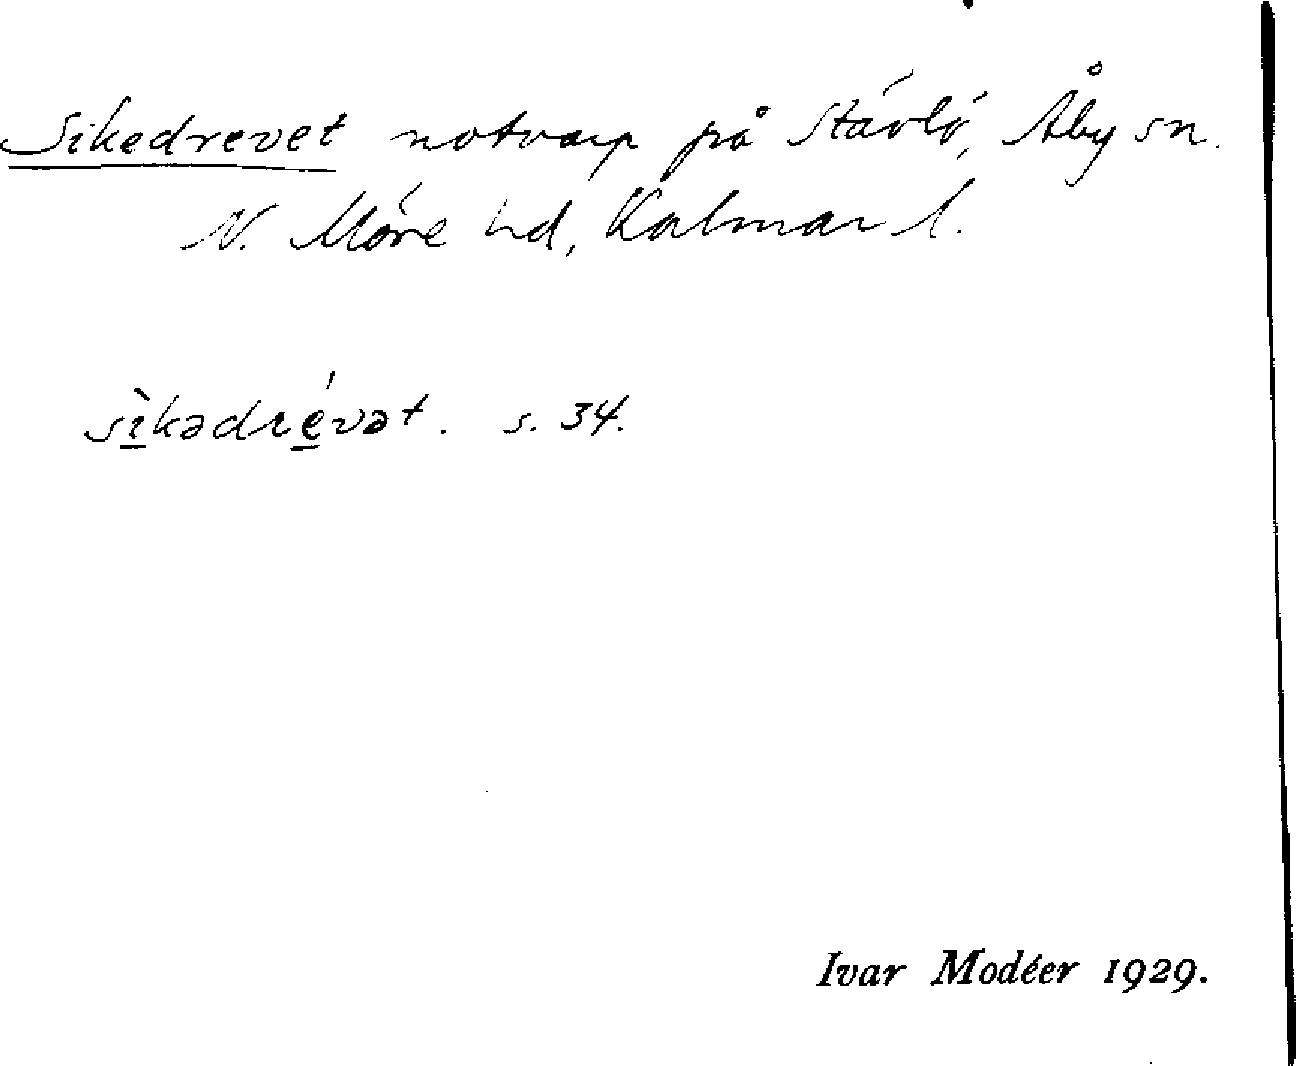 Sikedrevet notvarp på Stävlö, Åby sn.
N. Möre hd, Kalmar l.
sìkadrévət. s. 34.
Ivar Modéer 1929.